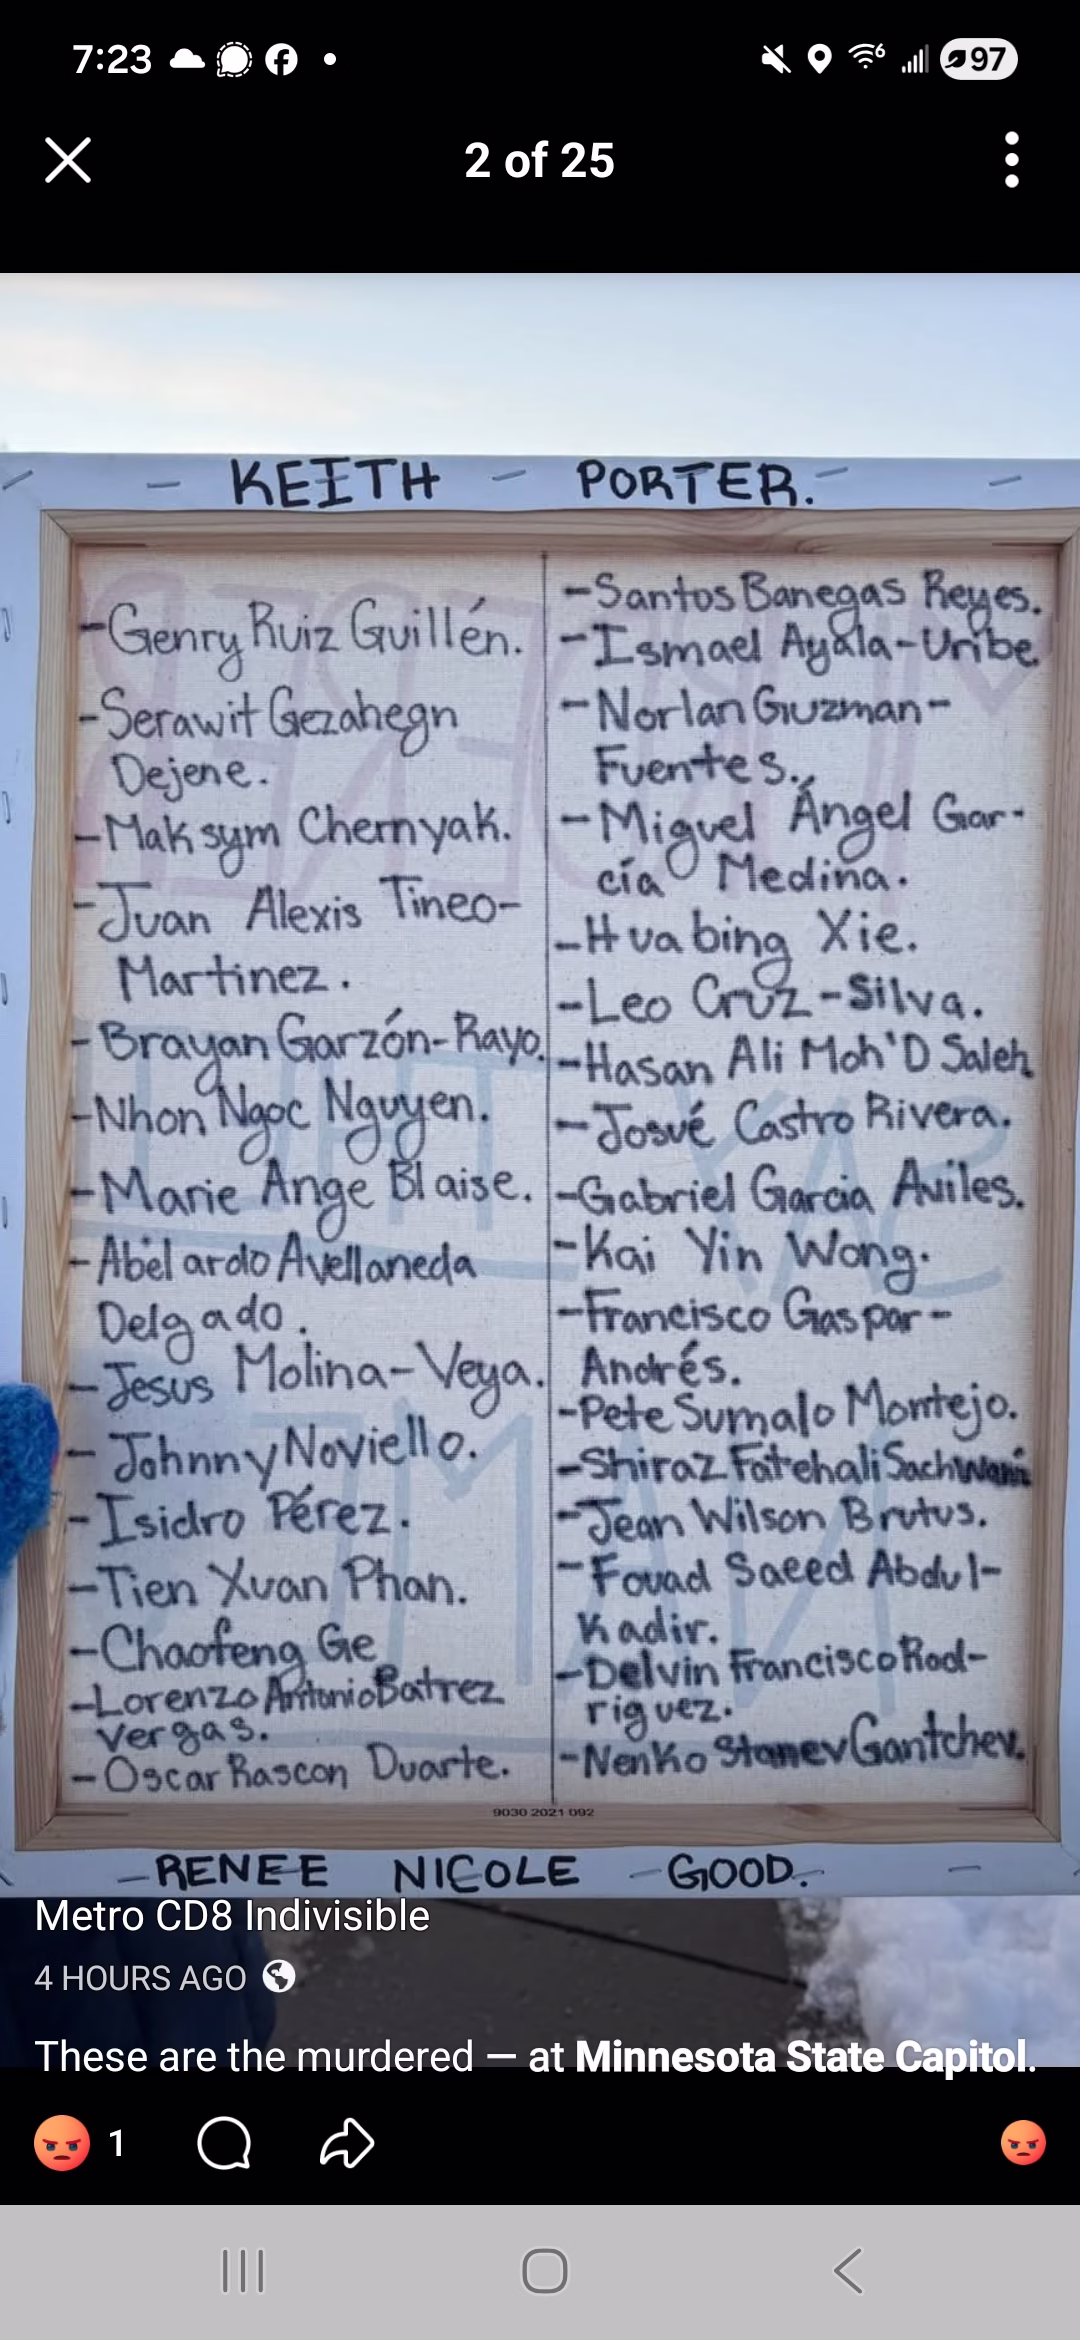 7:23
97
2 of 25
- KEITH - PORTER. -
-Genry Ruiz Guillén.
-Serawit Gezahegn
Dejene.
-Maksym Chernyak.
-Juan Alexis Tineo-
Martinez.
-Brayan Garzón-Rayo.
-Nhon Ngoc Nguyen.
-Marie Ange Blaise.
-Abelardo Avellaneda
Delgado.
-Jesus Molina-Veya.
-Johnny Noviello.
-Isidro Pérez.
-Tien Xuan Phan.
-Chaofeng Ge
-Lorenzo Antonio Batrez
Vergas.
-Oscar Rascon Duarte.
-Santos Banegas Reyes.
-Ismael Ayala-Uribe.
-Norlan Guzman-
Fuentes.
-Miguel Ángel Gar-
cía Medina.
-Huabing Xie.
-Leo Cruz-Silva.
-Hasan Ali Moh'D Saleh.
-Josué Castro Rivera.
-Gabriel Garcia Aviles.
-Kai Yin Wong.
-Francisco Gaspar-
Andrés.
-Pete Sumalo Montejo.
-Shiraz Fatehali Sachwani
-Jean Wilson Brutus.
-Fouad Saeed Abdul-
Kadir.
-Delvin Francisco Rod-
riguez.
-Nenko Stanev Gantchev.
9030 2021 092
-RENEE NICOLE -GOOD.-
Metro CD8 Indivisible
4 HOURS AGO
These are the murdered — at Minnesota State Capitol.
1